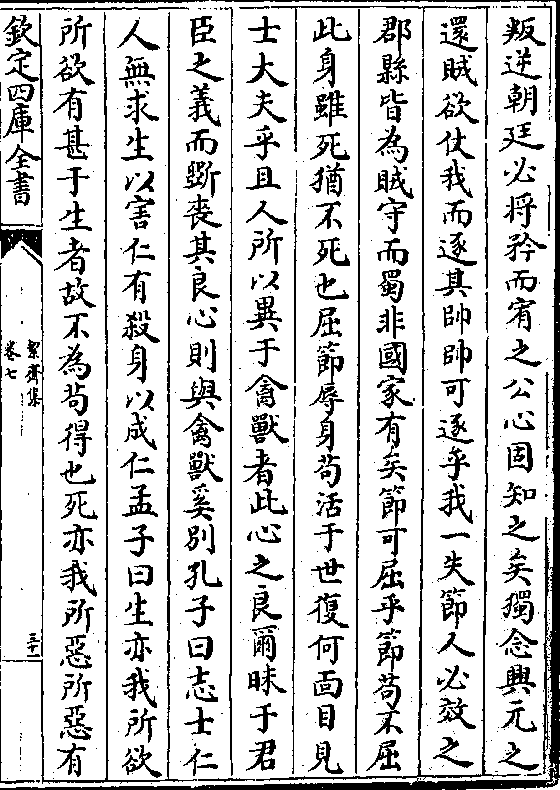 叛逆朝廷必将矜而宥之公心固知之矣獨念興元之
還賊欲仗我而逐其帥帥可逐乎我一失節人必效之
郡縣皆為賊守而蜀非國家有矣節可屈乎節苟不屈
此身雖死猶不死也屈節辱身苟活于世復何面目見
士大夫乎且人所以異于禽獸者此心之良爾昧于君
臣之義而斲喪其良心則與禽獸奚别孔子曰志士仁
人無求生以害仁有殺身以成仁孟子曰生亦我所欲
所欲有甚于生者故不為苟得也死亦我所惡所惡有
欽定四庫全書
絜齋集
卷七
三十